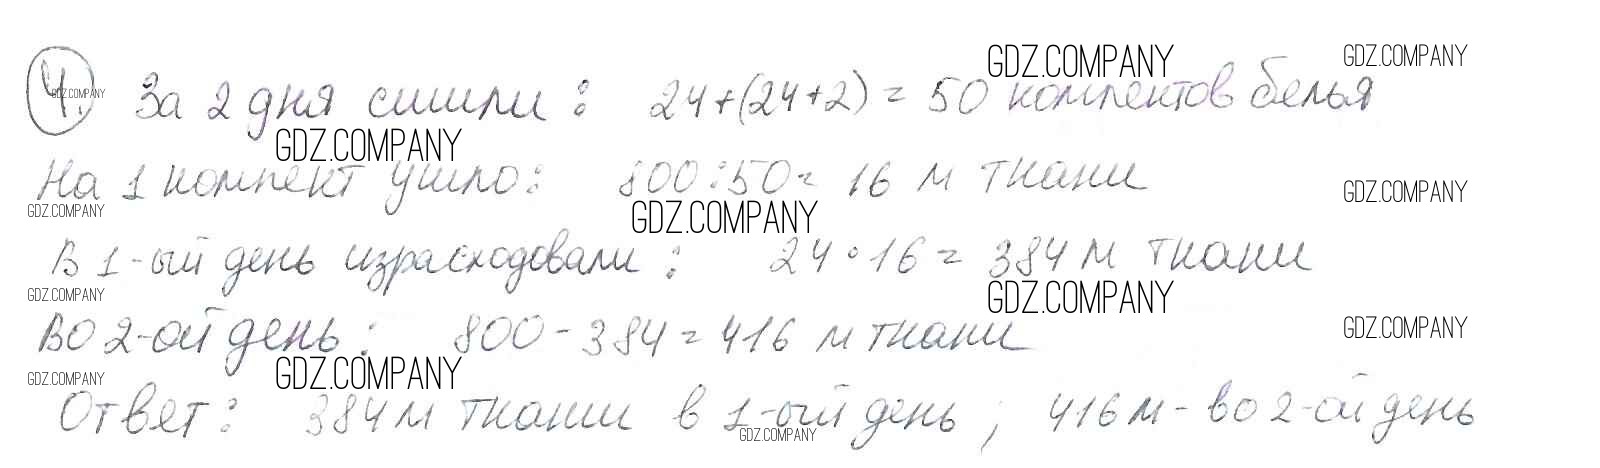 4. За 2 дня сшили: 24+(24+2) = 50 комплектов белья
На 1 комплект ушло: 800:50= 16 м ткани
В 1-ый день израсходовали: 24·16= 384 м ткани
Во 2-ой день: 800-384=416 м ткани
Ответ: 384 м ткани в 1-ый день; 416 м - во 2-ой день
GDZ.COMPANY
GDZ.COMPANY
GDZ.COMPANY
GDZ.COMPANY
GDZ.COMPANY
GDZ.COMPANY
GDZ.COMPANY
GDZ.COMPANY
GDZ.COMPANY
GDZ.COMPANY
GDZ.COMPANY
GDZ.COMPANY
GDZ.COMPANY